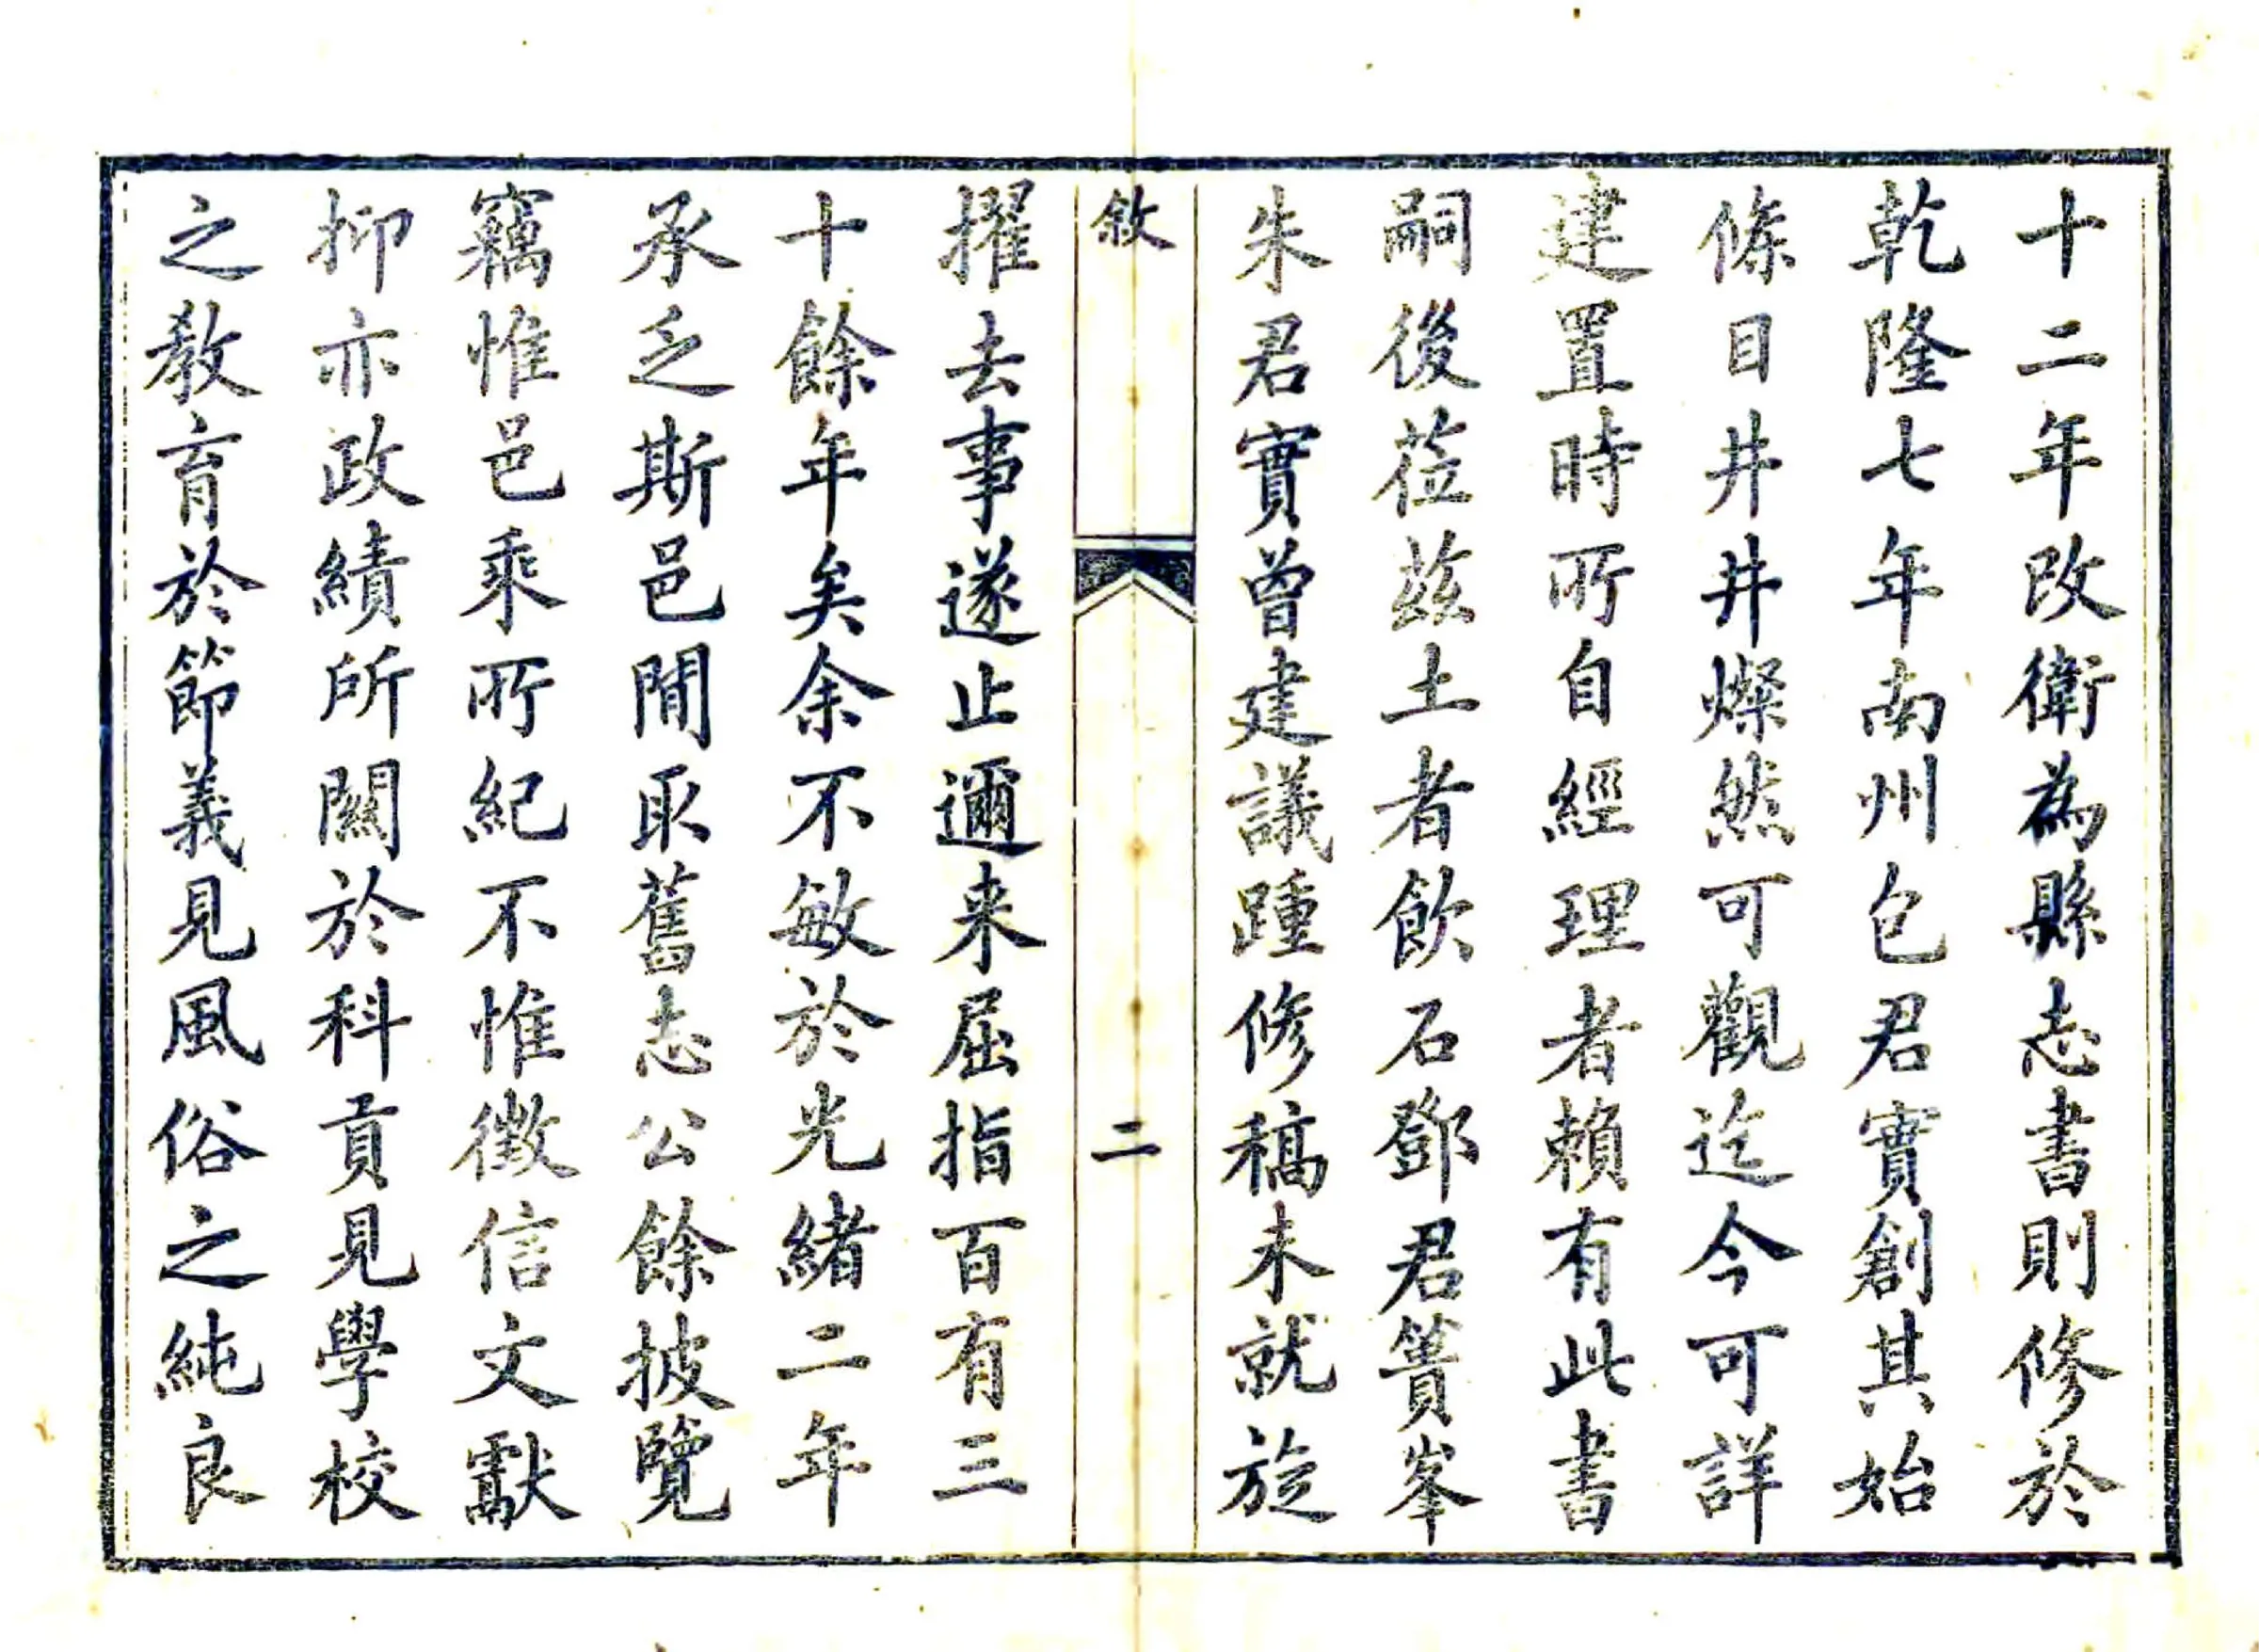 十二年改衛為縣志書則修於
乾隆七年南州包君實創其始
條目井井燦然可觀迄今可詳
建置時所自經理者賴有此書
嗣後莅茲土者飲石鄧君簣峯
朱君實曾建議踵修稿未就旋
敘
二
擢去事遂止邇来屈指百有三
十餘年矣余不敏於光緒二年
承乏斯邑閒取舊志公餘披覽
竊惟邑乘所紀不惟徵信文獻
抑亦政績所關於科貢見學校
之教育於節義見風俗之純良